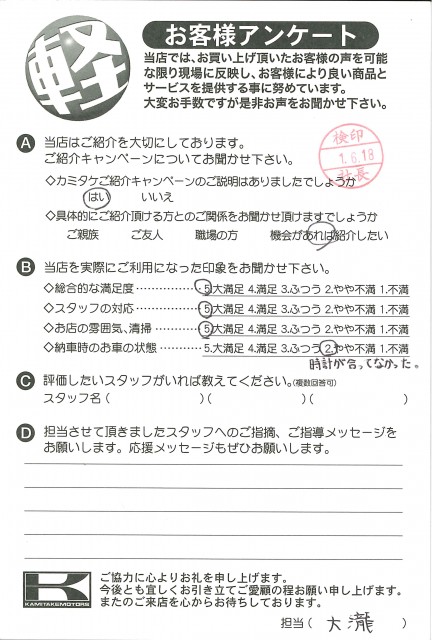 軽
お客様アンケート
当店では、お買い上げ頂いたお客様の声を可能
な限り現場に反映し、お客様により良い商品と
サービスを提供する事に努めています。
大変お手数ですが是非お声をお聞かせ下さい。
A 当店はご紹介を大切にしております。
ご紹介キャンペーンについてお聞かせ下さい。
検印
1.6.18
社長
◇カミタケご紹介キャンペーンのご説明はありましたでしょうか
はい いいえ
◇具体的にご紹介頂ける方とのご関係をお聞かせ頂けますでしょうか
ご親族 ご友人 職場の方 機会があれば紹介したい
B 当店を実際にご利用になった印象をお聞かせ下さい。
◇総合的な満足度……………5.大満足 4.満足 3.ふつう 2.やや不満 1.不満
◇スタッフの対応……………5.大満足 4.満足 3.ふつう 2.やや不満 1.不満
◇お店の雰囲気、清掃…………5.大満足 4.満足 3.ふつう 2.やや不満 1.不満
◇納車時のお車の状態…………5.大満足 4.満足 3.ふつう 2.やや不満 1.不満
時計が合ってなかった。
C 評価したいスタッフがいれば教えてください。(複数回答可)
スタッフ名( )( )( )
D 担当させて頂きましたスタッフへのご指摘、ご指導メッセージを
お願いします。応援メッセージもぜひお願いします。
K
KAMITAKEMOTORS
ご協力に心よりお礼を申し上げます。
今後とも宜しくお引き立てご愛顧の程お願い申し上げます。
またのご来店を心からお待ちしております。
担当( 大瀧 )